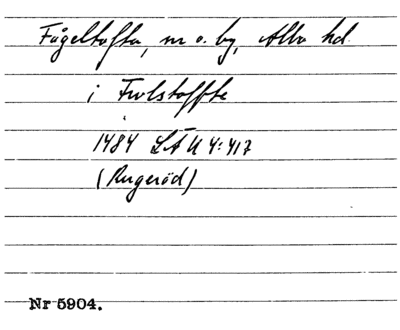 Fågeltofta, m o. by, Albo hd.
i Fwlstoffte
1484 LÄU 4:417
(Rugeröd)
Nr 5904.